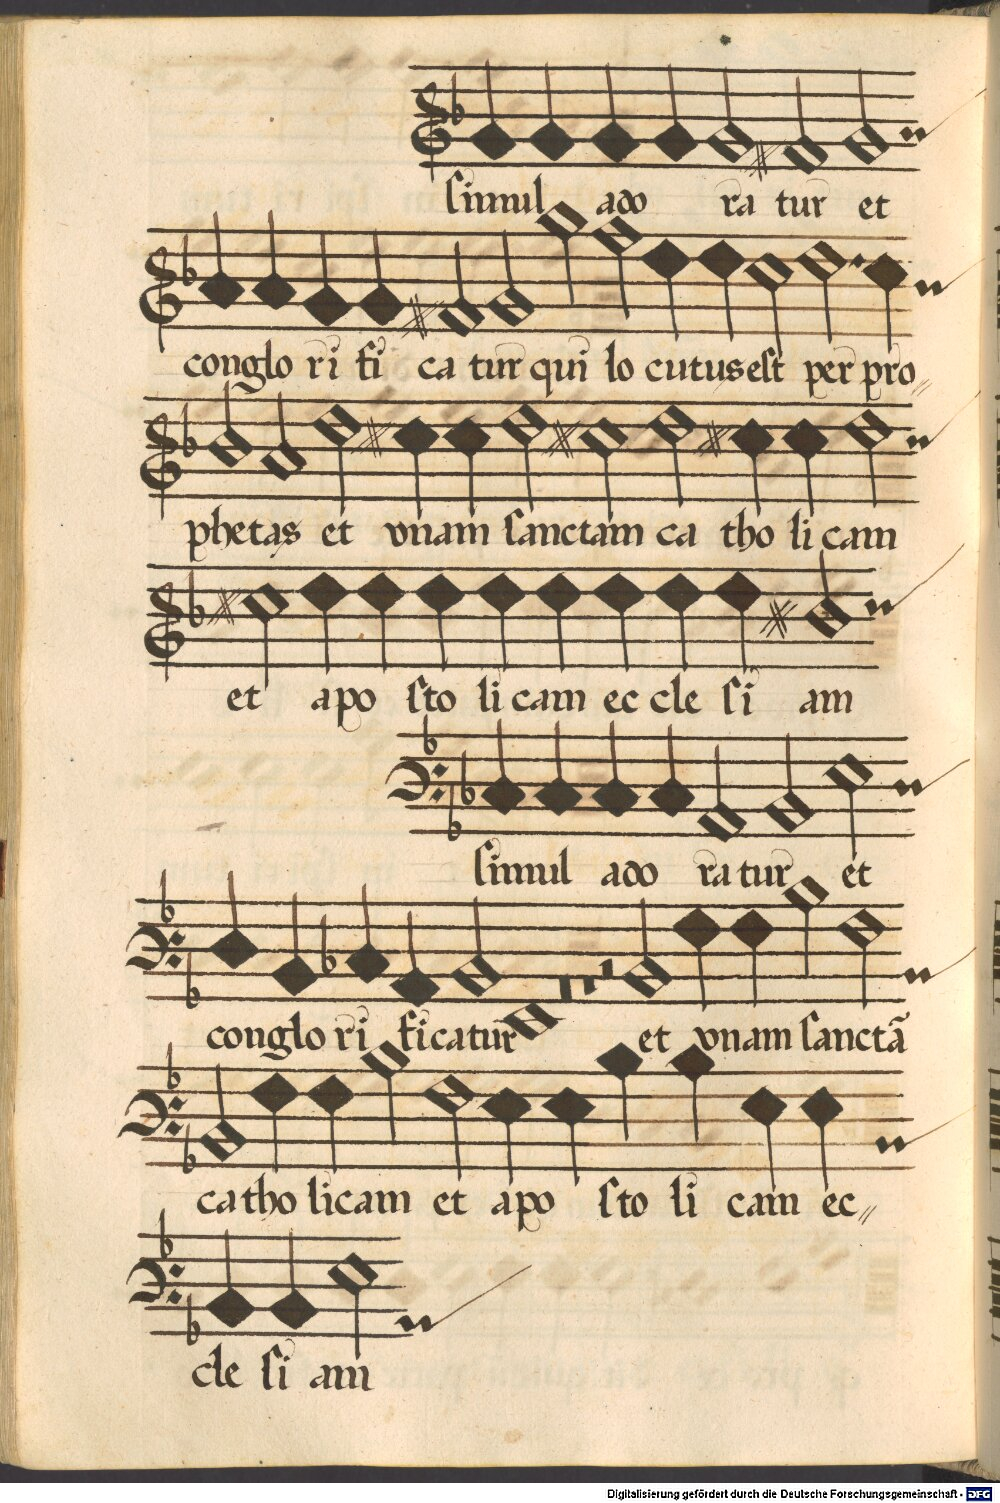 simul ado ra tur et
conglo ri fi ca tur qui lo cutus est per pro〃
phetas et vnam sanctam ca tho li cam
et apo sto li cam ec cle si am
simul ado ra tur et
conglo ri ficatur et vnam sanctā
catho licam et apo sto li cam ec〃
cle si am
Digitalisierung gefördert durch die Deutsche Forschungsgemeinschaft - DFG